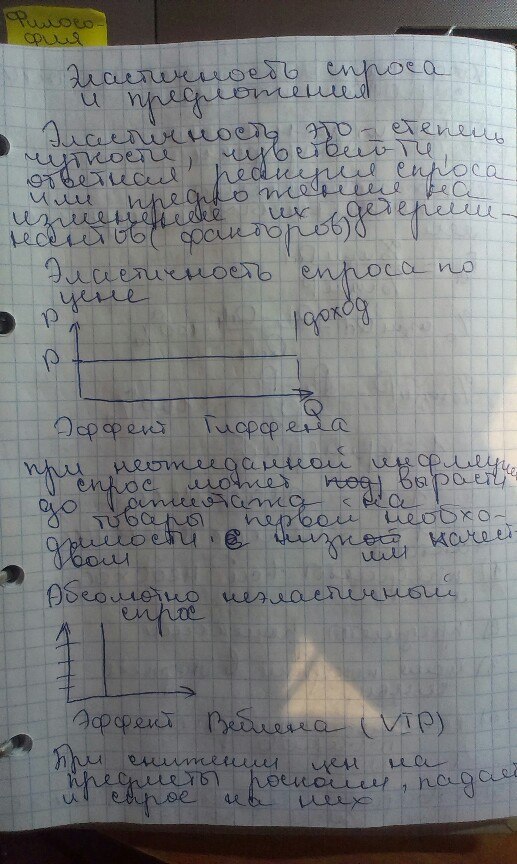 Филосо-
фия
Эластичность спроса
и предложения
Эластичность это - степень
чуткости, чувствит-ти,
ответная реакция спроса
или предложения на
изменение их детерми-
нантов (факторов)
Эластичность спроса по
цене
P
доход
P
Q
Эффект Гиффена
при неожиданной инфляции
спрос может под вырасти
до ажиотажа на
товары первой необхо-
димости с низким качест-
вом
Абсолютно неэластичный
спрос
Эффект Веблена (VIP)
При снижении цен на
предметы роскоши, падает
и спрос на них